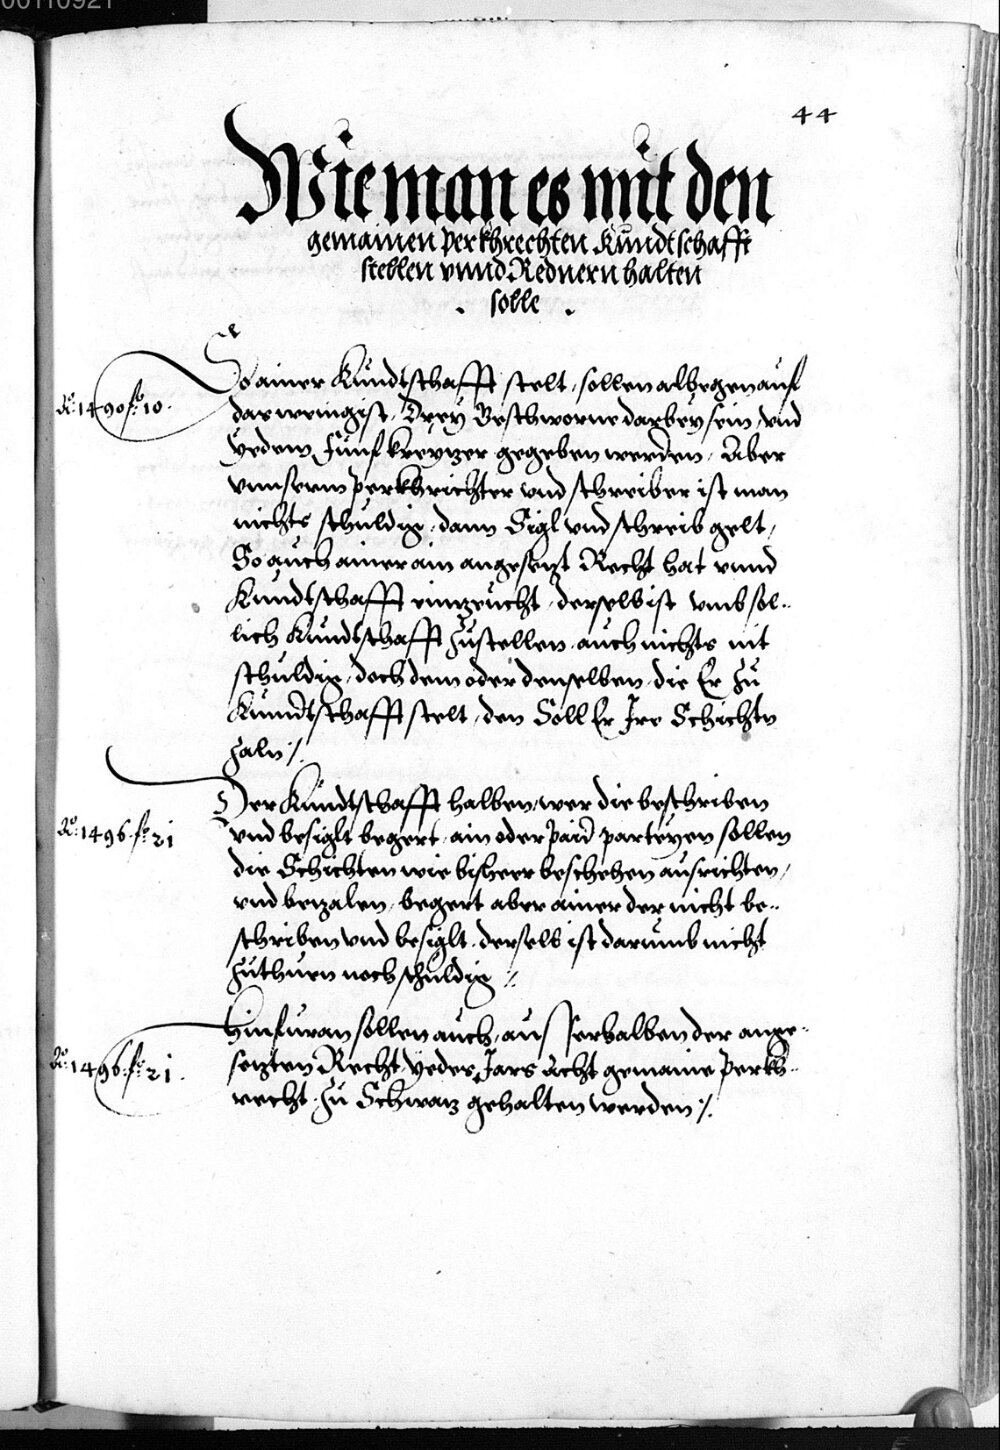 00110921
44
Wie man es mit den
gemainen Perkhrechten Kundtschafft
stellen vnnd Rednern halten
. solle .
So ainer Kundtschafft stelt, sollen albegen auf
Ao: 1490 fo: 10.
das wenigist, Drey Beschworne darbey sein, vnd
yedem Funf kreytzer gegeben werden, Aber
vnnserm Perkhrichter vnd schreiber ist man
nichts schuldig, dann Sigl vnd schreib gelt,
So auch ainer ain angesetzt Recht hat vnnd
Kundtschafft einzeucht, derselb ist vmb sol-
lich Kundtschafft zustellen auch nichts nit
schuldig, doch dem oder denselben, die Er zu
Kunndtschafft stelt, den Soll Er Ire Schichtn
zaln /.
Der Kundtschafft halben, wer die beschriben
Ao: 1496 fo: 21
vnd besiglt begert, ain oder paid partheyen sollen
die Schichten wie bisheer beschehen ausrichten,
vnd bezalen, begert aber ainer der nicht be-
schriben vnd besiglt, derselb ist darumb nicht
zuthuen noch schuldig /.
Hinfuran sollen auch, ausserhalben der ange-
Ao: 1496 fo: 21.
setzten Recht, yedes Jars Acht gemaine Perkh-
recht zu Schwatz gehalten werden /.